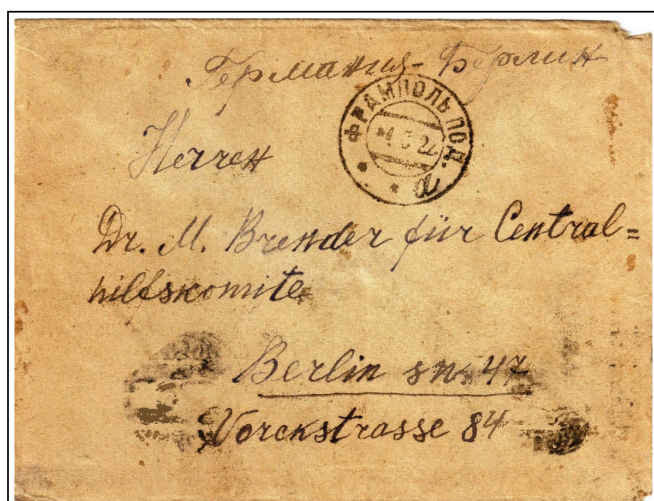 Германия-Берлин
ФРАМПОЛЬ ПОД.
Herren
Dr. M. Brender für Central=
hilfskomite
Berlin sw. 47
Yorckstrasse 84